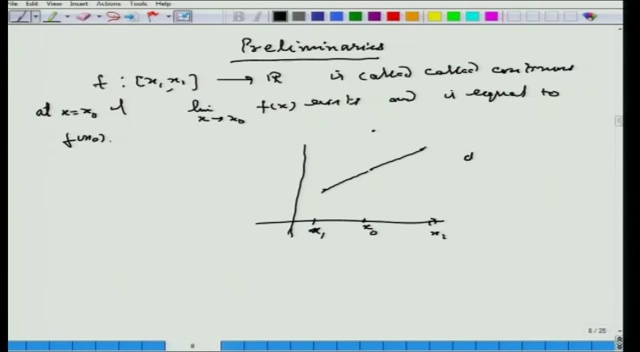 File Edit View Insert Actions Tools Help
Preliminaries
f : [x₁, x₁] → ℝ is called called continuous
at x=x₀ if lim x→x₀ f(x) exists and is equal to
f(x₀).
d
x₁ x₀ x₂
8 / 25
8